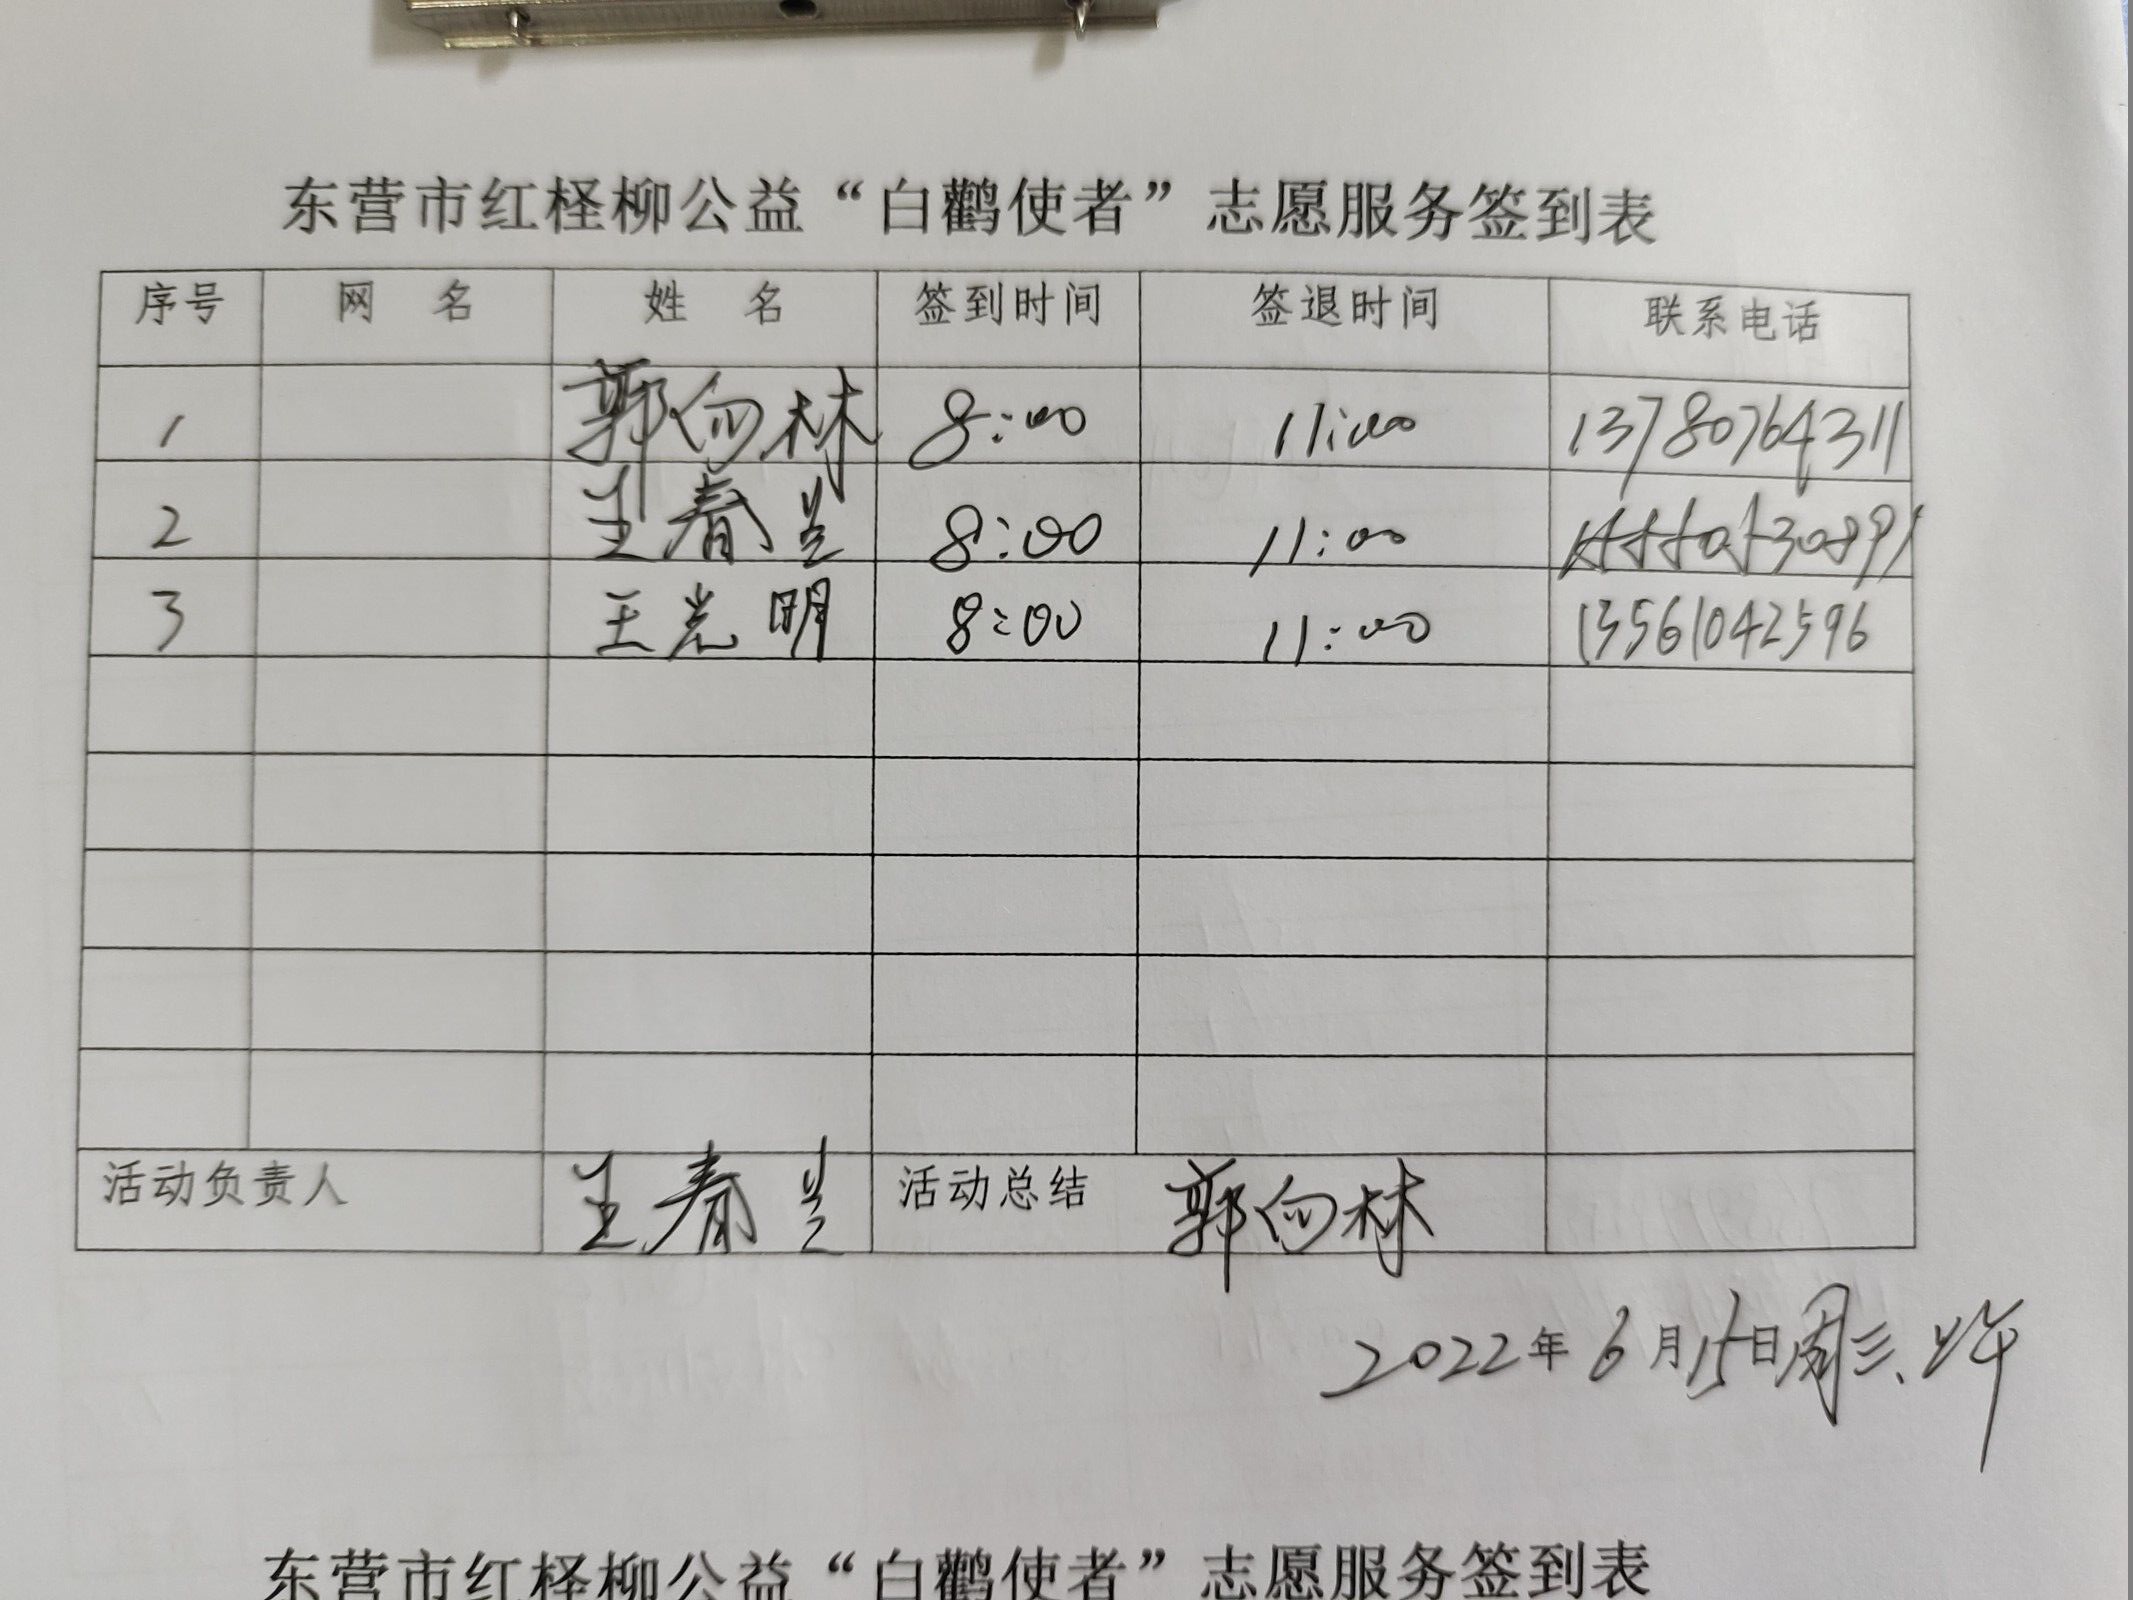 东营市红柽柳公益“白鹳使者”志愿服务签到表
序号 网 名 姓 名 签到时间 签退时间 联系电话
1 郭向林 8:00 11:00 13780764311
2 王春兰 8:00 11:00
3 王光明 8:00 11:00 13561042596
活动负责人 王春兰 活动总结 郭向林
2022年6月15日周三、上午
东营市红柽柳公益“白鹳使者”志愿服务签到表